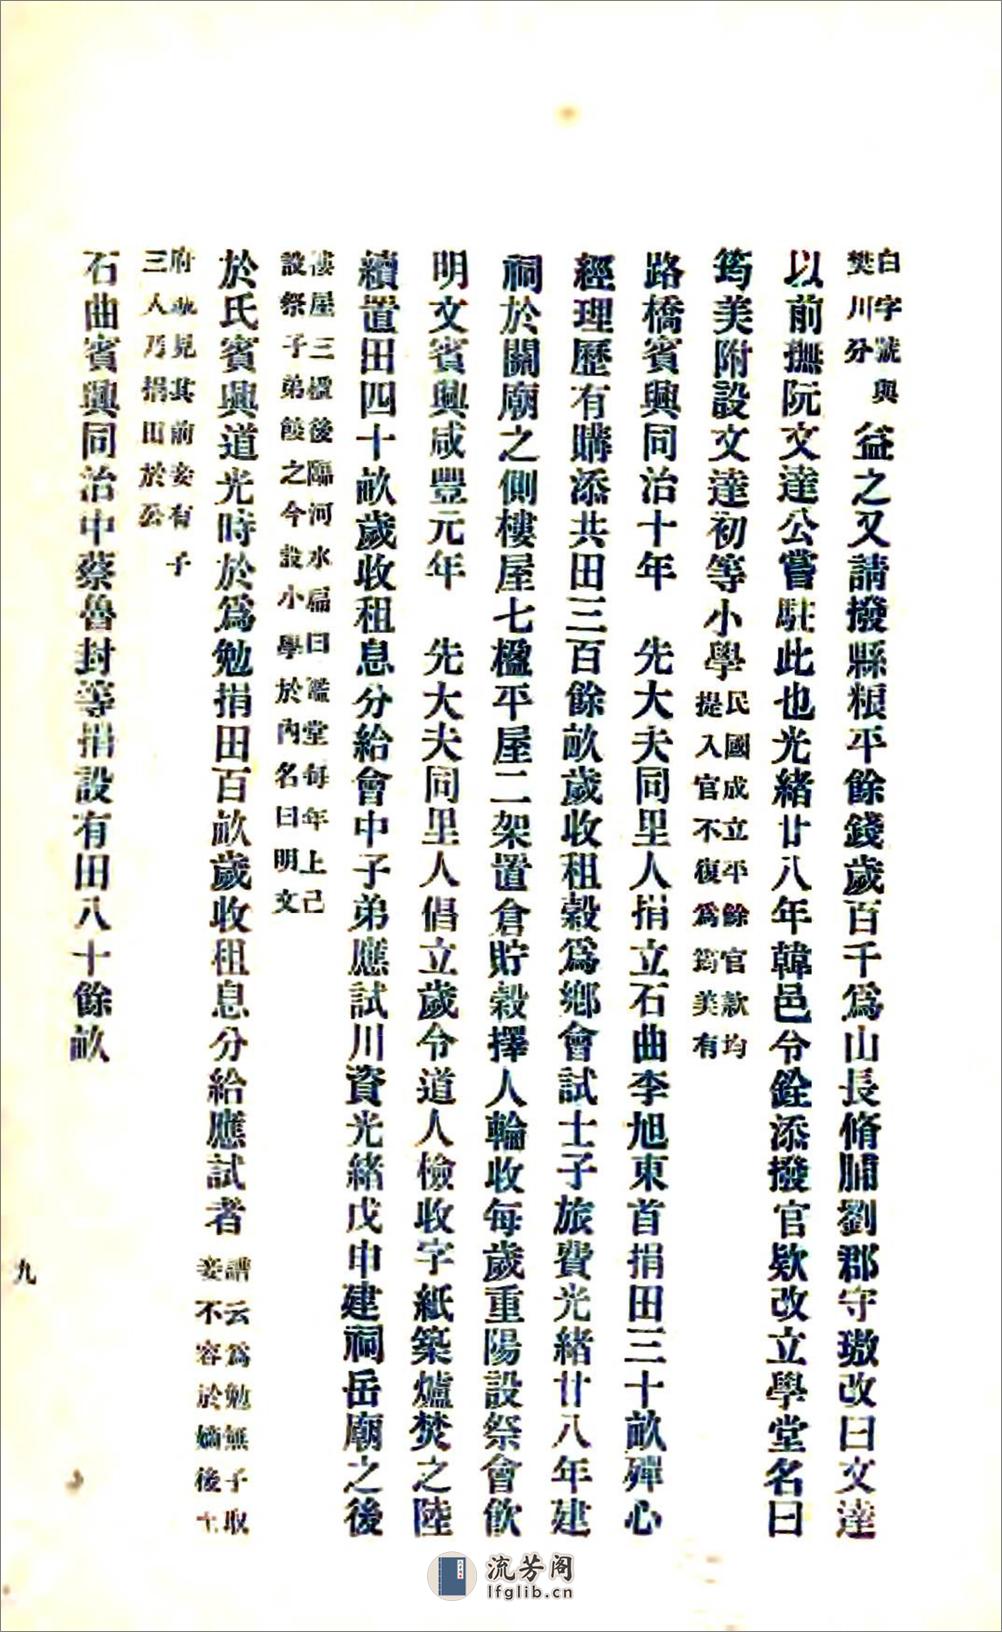 白字號與樊川分益之又請撥縣粮平餘錢歲百千爲山長脩脯劉郡守璈改曰文達
以前撫阮文達公嘗駐此也光緒廿八年韓邑令銓添撥官欵改立學堂名曰
筠美附設文達初等小學民國成立平餘官款均提入官不復爲筠美有
路橋賓興同治十年　先大夫同里人捐立石曲李旭東首捐田三十畝殫心
經理歷有購添共田三百餘畝歲收租穀爲鄉會試士子旅費光緒廿八年建
祠於關廟之側樓屋七楹平屋二架置倉貯穀擇人輪收每歲重陽設祭會飲
明文賓興咸豐元年　先大夫同里人倡立歲令道人檢收字紙築爐焚之陸
續置田四十畝歲收租息分給會中子弟應試川資光緒戊申建祠岳廟之後
樓屋三楹後臨河水扁曰鑑堂每年上巳設祭子弟餕之今設小學於內名曰明文
於氏賓興道光時於爲勉捐田百畝歲收租息分給應試者譜云爲勉無子取妾不容於嫡後
府見其前妾有子三人乃捐田於公
石曲賓興同治中蔡魯封等捐設有田八十餘畝
九
流芳阁
lfglib.cn